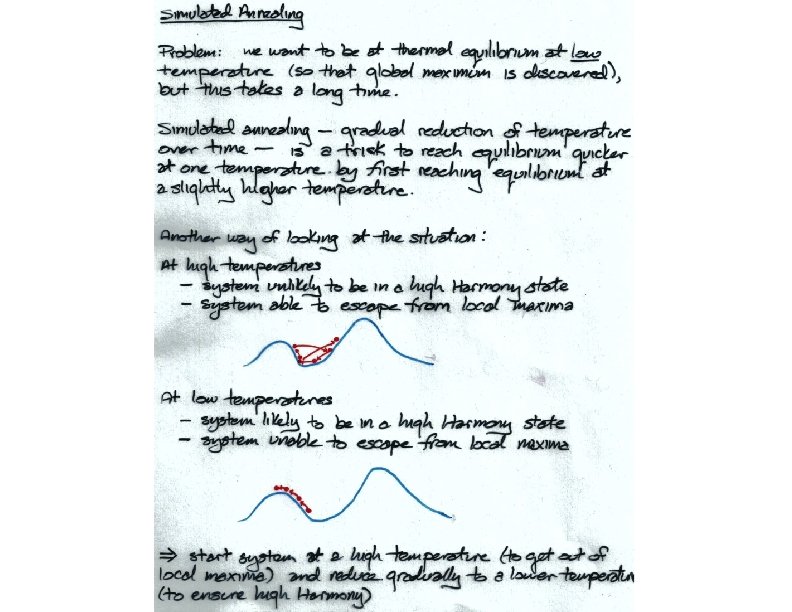 Simulated Annealing
Problem: we want to be at thermal equilibrium at low
temperature (so that global maximum is discovered),
but this takes a long time.
Simulated annealing — gradual reduction of temperature
over time — is a trick to reach equilibrium quicker
at one temperature by first reaching equilibrium at
a slightly higher temperature.
Another way of looking at the situation:
At high temperatures
- system unlikely to be in a high Harmony state
- system able to escape from local maxima
At low temperatures
- system likely to be in a high Harmony state
- system unable to escape from local maxima
⇒ start system at a high temperature (to get out of
local maxima) and reduce gradually to a lower temperatur
(to ensure high Harmony)